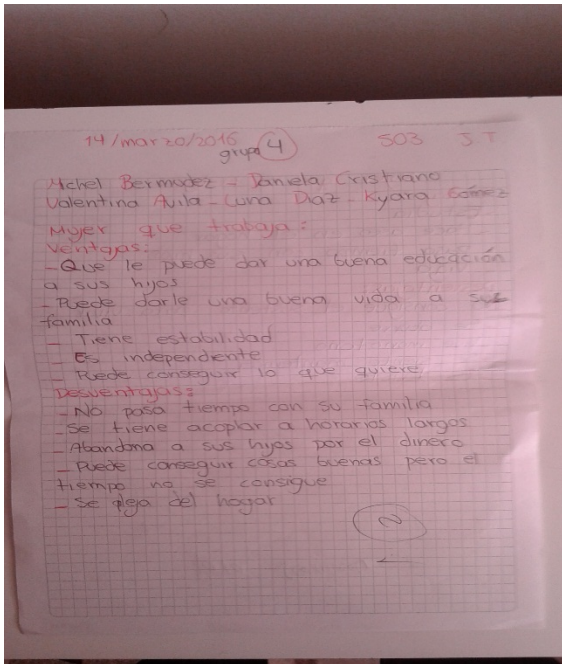 14/marzo/2016 503 J.T
grupo 4
Michel Bermudez - Daniela Cristiano
Valentina Avila - Luna Diaz - Kyara Gómez
Mujer que trabaja:
Ventajas:
- Que le puede dar una buena educación
a sus hijos
- Puede darle una buena vida a su
familia
- Tiene estabilidad
- Es independiente
- Puede conseguir lo que quiere
Desventajas:
- No pasa tiempo con su familia
- Se tiene acoplar a horarios largos
- Abandona a sus hijos por el dinero
- Puede conseguir cosas buenas pero el
tiempo no se consigue
- Se aleja del hogar
2